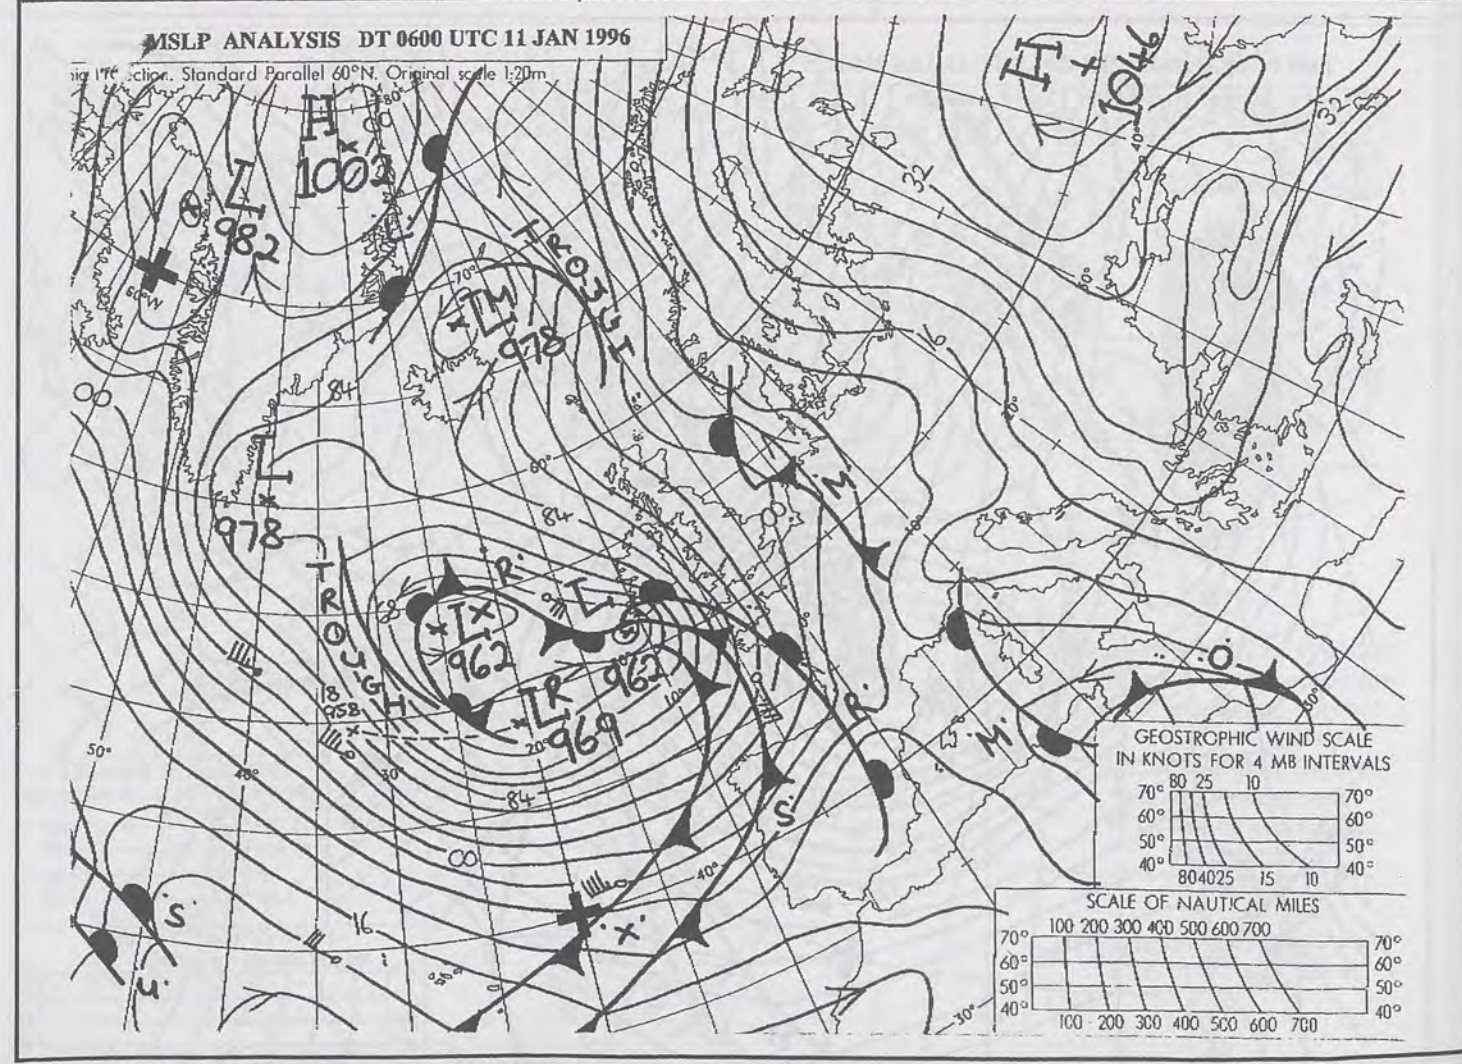 MSLP ANALYSIS DT 0600 UTC 11 JAN 1996
Standard Parallel 60°N. Original scale 1:20m
H
1002
L
982
H
1046
32
32
80°
00
60°W
70°
LM
978
TROUGH
84
00
L
978
60°
84
16
40°
00
M
TROUGH
R
L
LX
962
962
LR
969
18
958
50°
40°
30°
20°
10°
84
00
16
S
R
M
O
X
40°
30°
S
U
GEOSTROPHIC WIND SCALE
IN KNOTS FOR 4 MB INTERVALS
80 25 10
70° 70°
60° 60°
50° 50°
40° 40°
80 40 25 15 10
SCALE OF NAUTICAL MILES
100 200 300 400 500 600 700
70° 70°
60° 60°
50° 50°
40° 40°
100 200 300 400 500 600 700